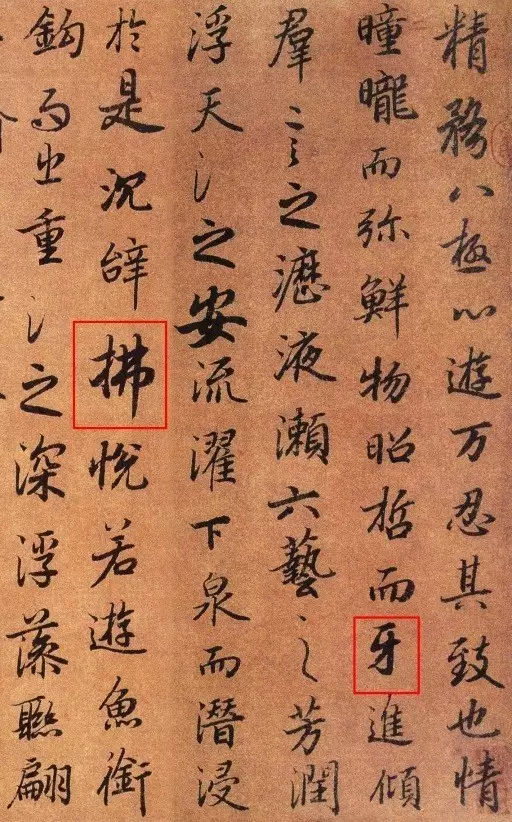 精務八極心遊万忍其致也情
曈曨而弥鮮物昭哲而牙進傾
羣言之瀝液瀬六藝之芳潤
浮天之安流濯下泉而潛浸
於是沉辝拂悅若遊魚銜
鉤而出重之深浮藻聮翩